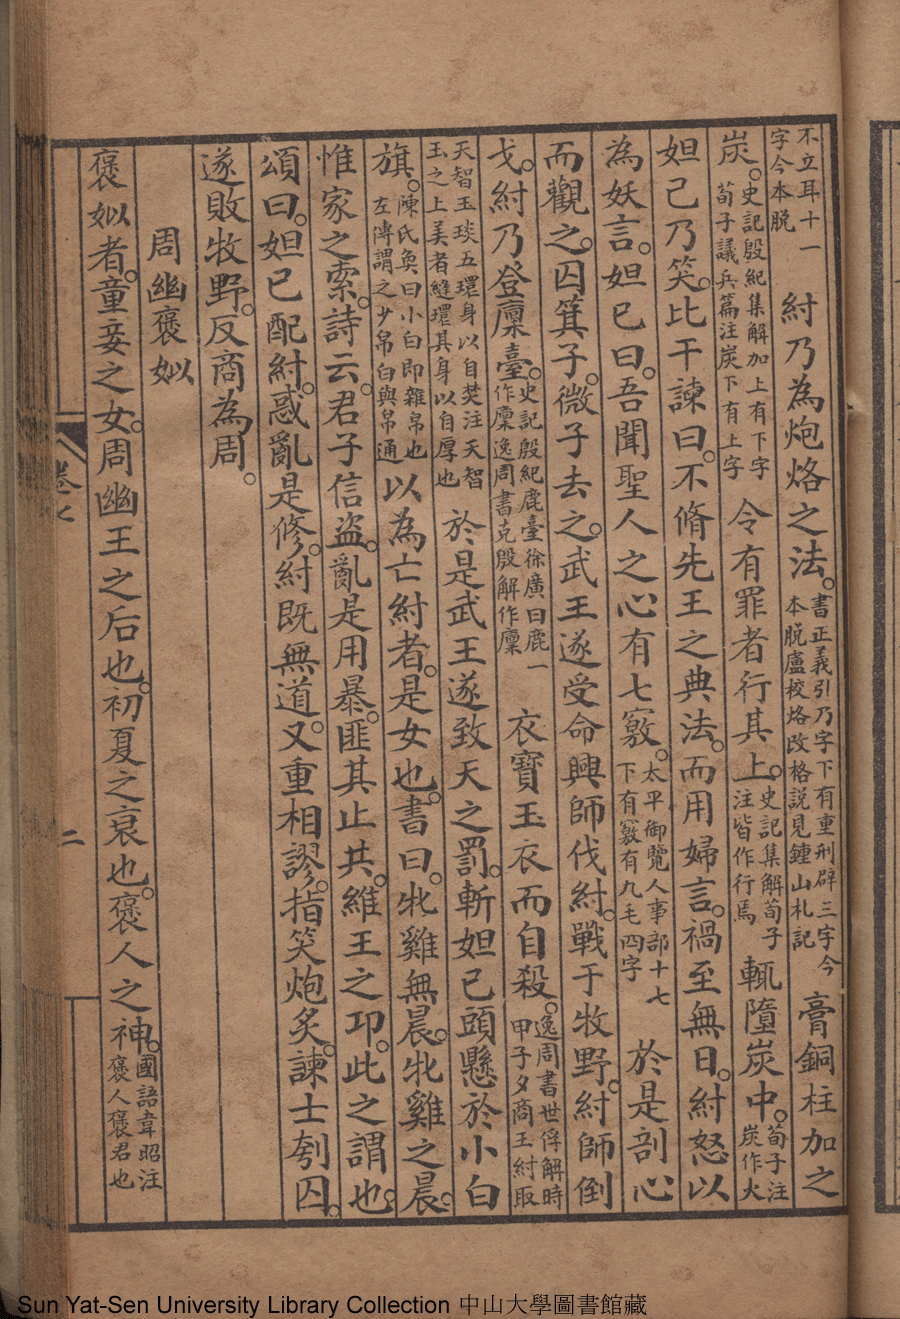 不立耳十一
字今本脱
紂乃為炮烙之法。
書正義引乃字下有重刑辟三字今
本脱盧校烙改格說見鍾山札記
膏銅柱加之
炭。
史記殷紀集解加上有下字
荀子議兵篇注炭下有上字
令有罪者行其上。
史記集解荀子
注皆作行焉
輒墮炭中。
荀子注
炭作火
妲己乃笑。比干諫曰。不脩先王之典法。而用婦言。禍至無日。紂怒以
為妖言。妲己曰。吾聞聖人之心有七竅。
太平御覽人事部十七
下有竅有九毛四字
於是剖心
而觀之。囚箕子。微子去之。武王遂受命興師伐紂。戰于牧野。紂師倒
戈。紂乃登廩臺。
史記殷紀鹿臺徐廣曰鹿一
作廩逸周書克殷解作廩
衣寶玉衣而自殺。
逸周書世俘解時
甲子夕商王紂取
天智玉琰五環身以自焚注天智
玉之上美者縫環其身以自厚也
於是武王遂致天之罰。斬妲己頭懸於小白
旗。
陳氏奐曰小白即雜帛也
左傳謂之少帛白與帛通
以為亡紂者。是女也。書曰。牝雞無晨。牝雞之晨。
惟家之索。詩云。君子信盜。亂是用暴。匪其止共。維王之卭。此之謂也。
頌曰。妲己配紂。惑亂是修。紂既無道。又重相謬。指笑炮炙。諫士刳囚。
遂敗牧野。反商為周。
周幽褒姒
褒姒者。童妾之女。周幽王之后也。初夏之衰也。褒人之神。
國語韋昭注
褒人褒君也
卷七
二
Sun Yat-Sen University Library Collection 中山大學圖書館藏